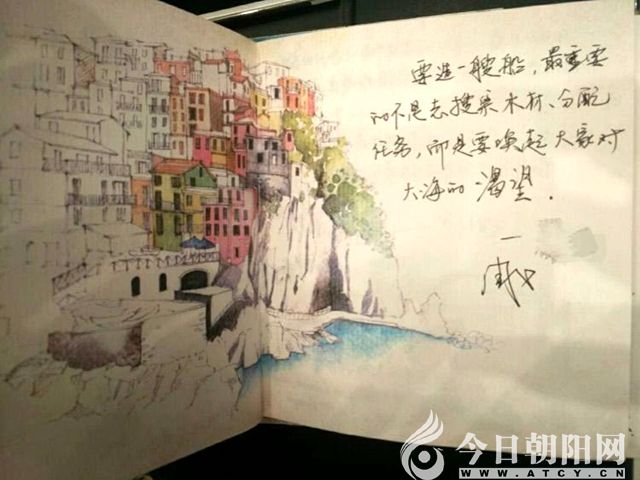 要造一艘船，最重要
的不是去搜集木材、分配
任务，而是要唤起大家对
大海的渴望．
今日朝阳网
WWW.ATCY.CN